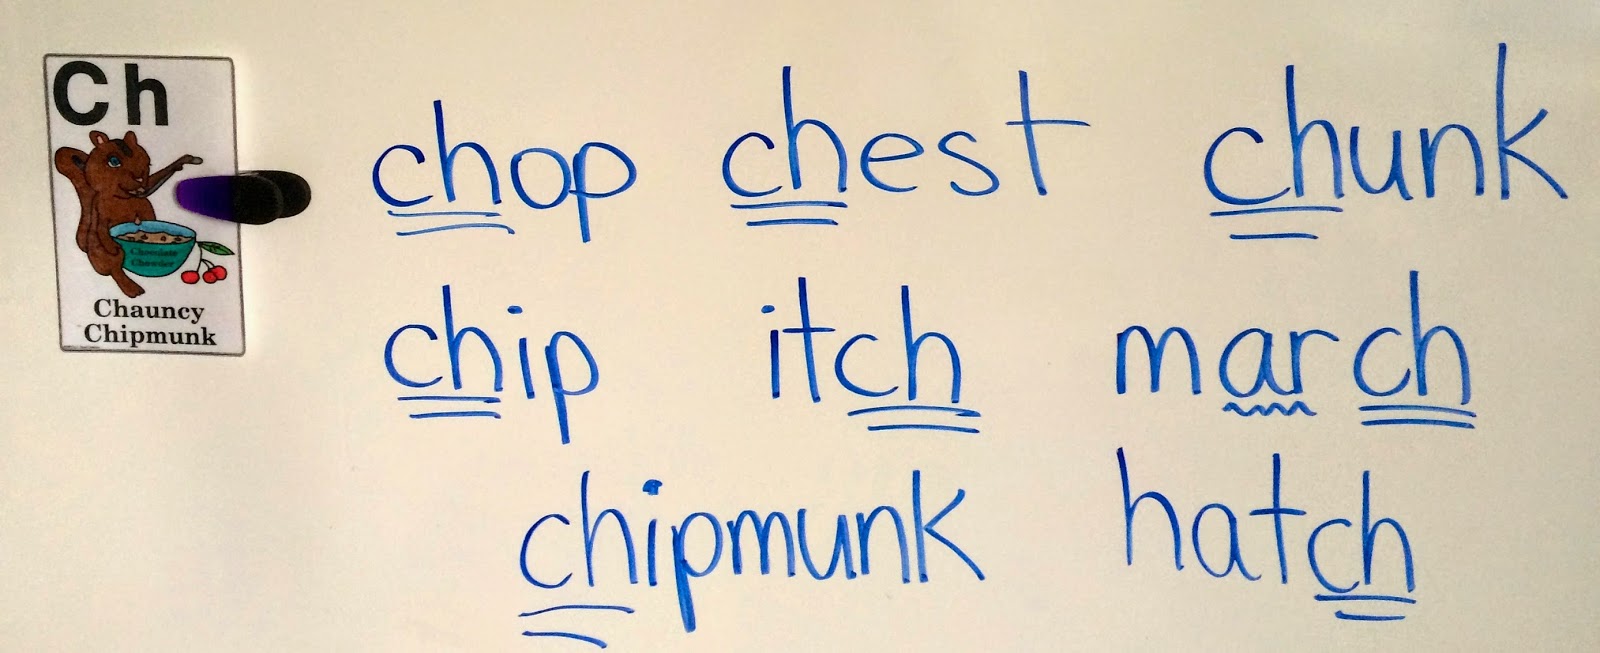 Ch
Chocolate
Chowder
Chauncy
Chipmunk
chop chest chunk
chip itch march
chipmunk hatch